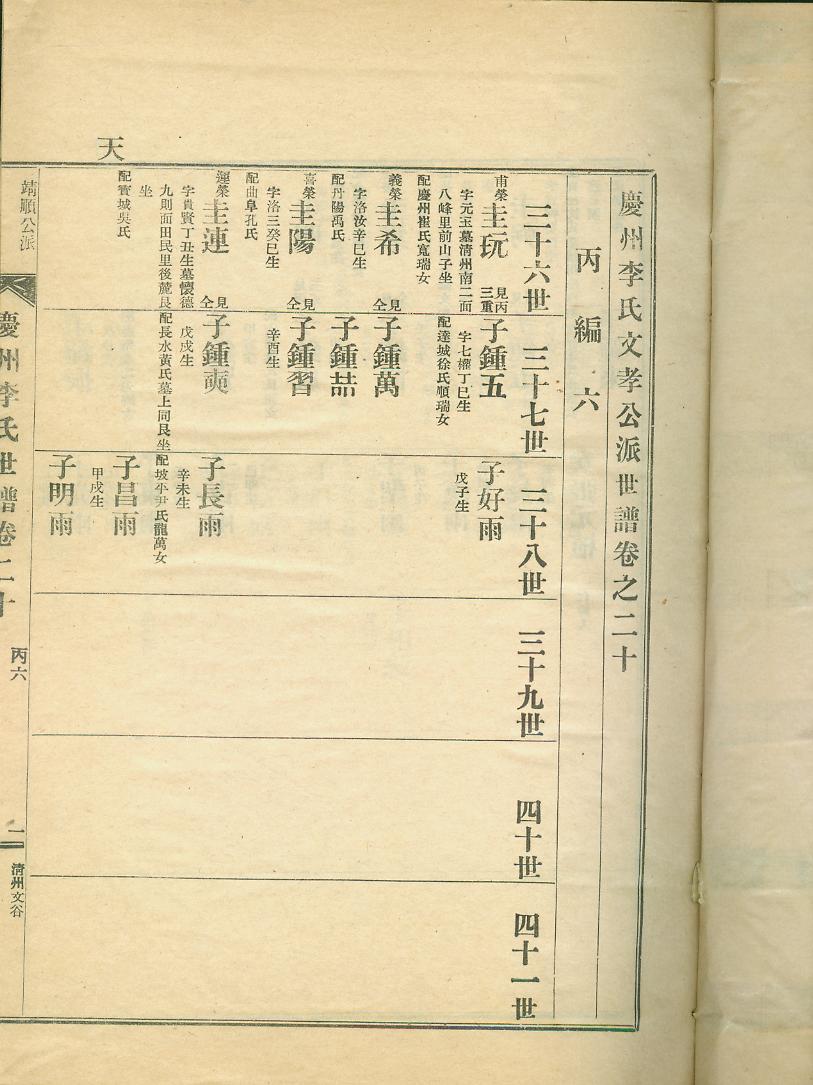 天
慶州李氏文孝公派世譜卷之二十
丙編六
三十六世
三十七世
三十八世
三十九世
四十世
四十一世
甫榮
圭玩
見丙三重
字元玉墓清州南二面
八峰里前山子坐
配慶州崔氏寬瑞女
義榮
圭希
見仝
字洛汝辛巳生
配丹陽禹氏
喜榮
圭陽
見仝
字洛三癸巳生
配曲阜孔氏
運榮
圭連
見仝
字貴賢丁丑生墓懷德
九則面田民里後麓艮
坐
配寶城吳氏
子鍾五
字七權丁巳生
配達城徐氏順瑞女
子鍾萬
子鍾喆
子鍾習
辛酉生
子鍾奭
戊戌生
配長水黃氏墓上同艮坐
子好雨
戊子生
子長雨
辛未生
配坡平尹氏龍萬女
子昌雨
甲戌生
子明雨
靖順公派
慶州李氏世譜卷二十
丙六
二
清州文谷